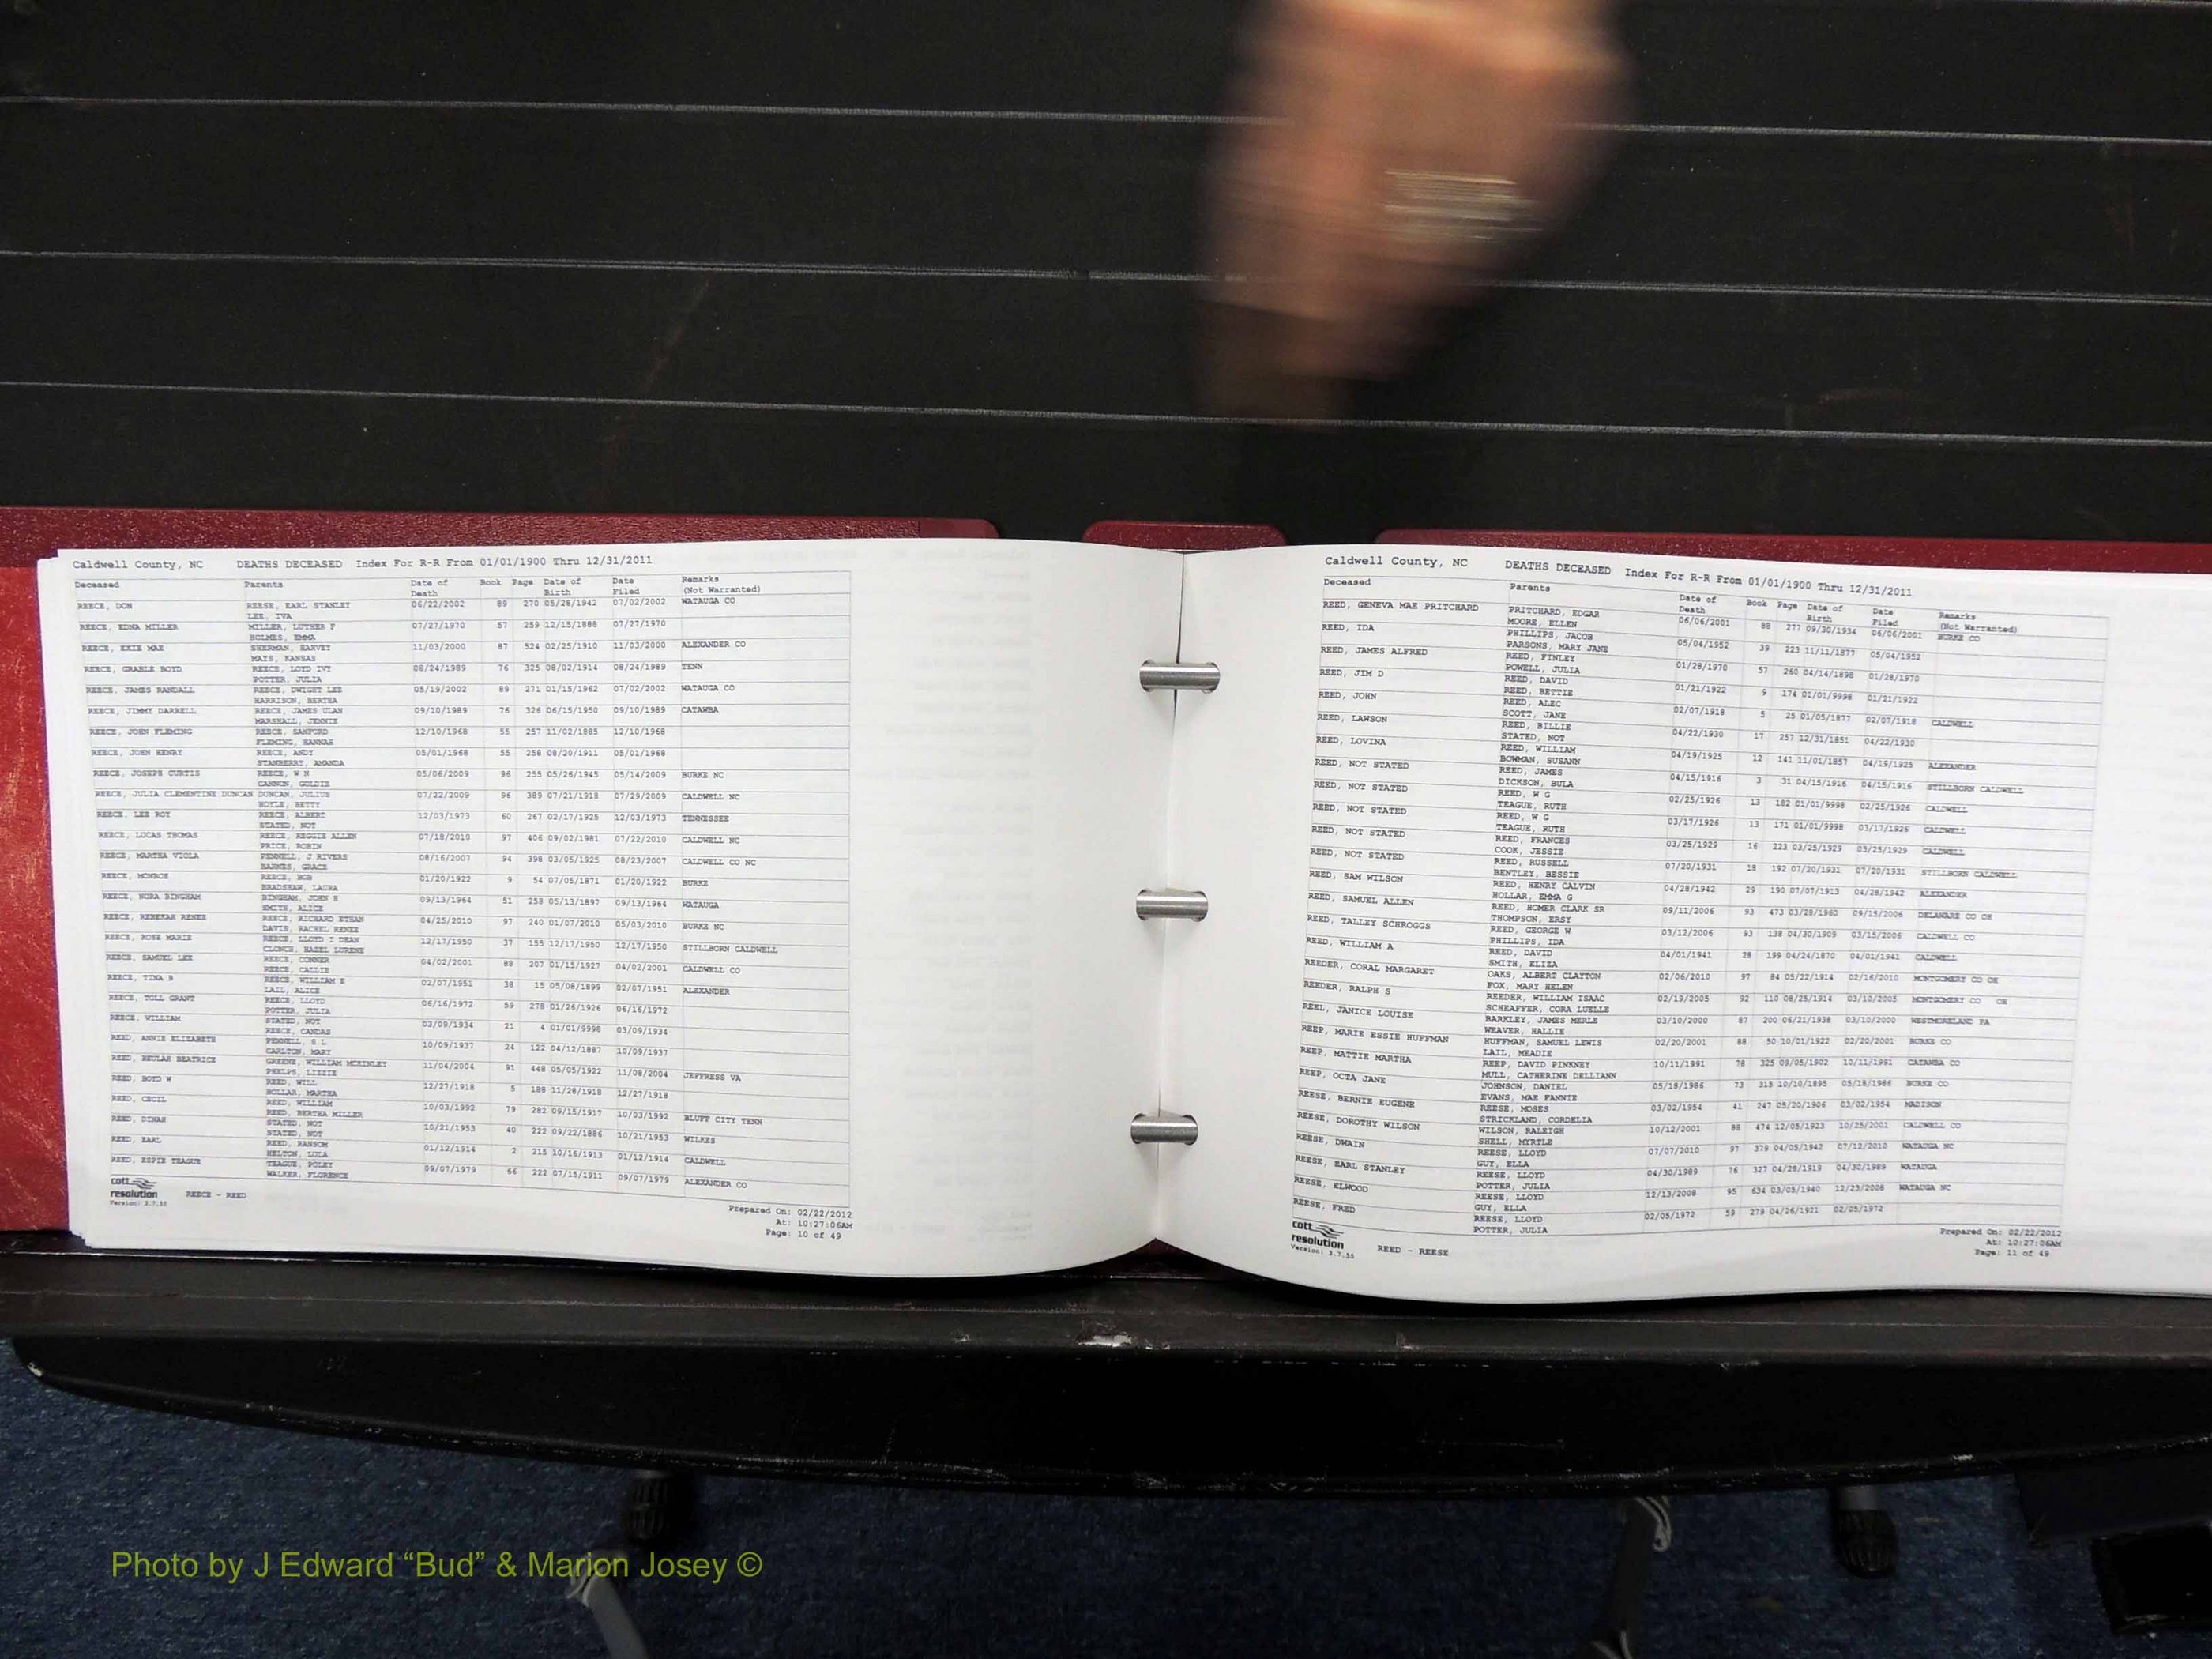 Caldwell County, NC DEATHS DECEASED Index For R-R From 01/01/1900 Thru 12/31/2011
Deceased Parents Date of Death Book Page Date of Birth Date Filed Remarks (Not Warranted)
REECE, DON REESE, EARL STANLEY 06/22/2002 89 270 05/28/1942 07/02/2002 WATAUGA CO
LEE, IVA
REECE, EDNA MILLER MILLER, LUTHER F 07/27/1970 57 259 12/15/1888 07/27/1970
HOLMES, EMMA
REECE, EXIE MAE SHERMAN, HARVEY 11/03/2000 87 524 02/25/1910 11/03/2000 ALEXANDER CO
MAYS, KANSAS
REECE, GRABLE BOYD REECE, LOYD IVY 08/24/1989 76 325 08/02/1914 08/24/1989 TENN
POTTER, JULIA
REECE, JAMES RANDALL REECE, DWIGHT LEE 05/19/2002 89 271 01/15/1962 07/02/2002 WATAUGA CO
HARRISON, BERTHA
REECE, JIMMY DARRELL REECE, JAMES ULAN 09/10/1989 76 326 06/15/1950 09/10/1989 CATAWBA
MARSHALL, JENNIE
REECE, JOHN FLEMING REECE, SANFORD 12/10/1968 55 257 11/02/1885 12/10/1968
FLEMING, HANNAH
REECE, JOHN HENRY REECE, ANDY 05/01/1968 55 258 08/20/1911 05/01/1968
STANBERRY, AMANDA
REECE, JOSEPH CURTIS REECE, W N 05/06/2009 96 255 05/26/1945 05/14/2009 BURKE NC
CANNON, GOLDIE
REECE, JULIA CLEMENTINE DUNCAN DUNCAN, JULIUS 07/22/2009 96 389 07/21/1918 07/29/2009 CALDWELL NC
HOYLE, BETTY
REECE, LEE ROY REECE, ALBERT 12/03/1973 60 267 02/17/1925 12/03/1973 TENNESSEE
STATED, NOT
REECE, LUCAS THOMAS REECE, REGGIE ALLEN 07/18/2010 97 406 09/02/1981 07/22/2010 CALDWELL NC
PRICE, ROBIN
REECE, MARTHA VIOLA PENNELL, J RIVERS 08/16/2007 94 398 03/05/1925 08/23/2007 CALDWELL CO NC
BARNES, GRACE
REECE, MONROE REECE, BOB 01/20/1922 9 54 07/05/1871 01/20/1922 BURKE
BRADSHAW, LAURA
REECE, NORA BINGHAM BINGHAM, JOHN H 09/13/1964 51 258 05/13/1897 09/13/1964 WATAUGA
SMITH, ALICE
REECE, REBEKAH RENEE REECE, RICHARD ETHAN 04/25/2010 97 240 01/07/2010 05/03/2010 BURKE NC
DAVIS, RACHEL RENEE
REECE, ROSE MARIE REECE, LLOYD I DEAN 12/17/1950 37 155 12/17/1950 12/17/1950 STILLBORN CALDWELL
CLONCH, HAZEL LORENE
REECE, SAMUEL LEE REECE, CONNER 04/02/2001 88 207 01/15/1927 04/02/2001 CALDWELL CO
REECE, CALLIE
REECE, TINA B REECE, WILLIAM E 02/07/1951 38 15 05/08/1899 02/07/1951 ALEXANDER
LAIL, ALICE
REECE, TOLL GRANT REECE, LLOYD 06/16/1972 59 278 01/26/1926 06/16/1972
POTTER, JULIA
REECE, WILLIAM STATED, NOT 03/09/1934 21 4 01/01/9998 03/09/1934
REECE, CANDAS
REED, ANNIE ELIZABETH PENNELL, S L 10/09/1937 24 122 04/12/1887 10/09/1937
CARLTON, MARY
REED, BEULAH BEATRICE GREENE, WILLIAM MCKINLEY 11/04/2004 91 448 05/05/1922 11/08/2004 JEFFRESS VA
PHELPS, LIZZIE
REED, BOYD W REED, WILL 12/27/1918 5 188 11/28/1918 12/27/1918
HOLLAR, MARTHA
REED, CECIL REED, WILLIAM 10/03/1992 79 282 09/15/1917 10/03/1992 BLUFF CITY TENN
REED, BERTHA MILLER
REED, DINAH STATED, NOT 10/21/1953 40 222 09/22/1886 10/21/1953 WILKES
STATED, NOT
REED, EARL REED, RANSOM 01/12/1914 2 215 10/16/1913 01/12/1914 CALDWELL
HELTON, LULA
REED, ESPIE TEAGUE TEAGUE, POLEY 09/07/1979 66 222 07/15/1911 09/07/1979 ALEXANDER CO
WALKER, FLORENCE
cott
resolution REECE - REED
Version: 3.7.55
Prepared On: 02/22/2012
At: 10:27:06AM
Page: 10 of 49
Caldwell County, NC DEATHS DECEASED Index For R-R From 01/01/1900 Thru 12/31/2011
Deceased Parents Date of Death Book Page Date of Birth Date Filed Remarks (Not Warranted)
REED, GENEVA MAE PRITCHARD PRITCHARD, EDGAR 06/06/2001 88 277 09/30/1934 06/06/2001 BURKE CO
MOORE, ELLEN
REED, IDA PHILLIPS, JACOB 05/04/1952 39 223 11/11/1877 05/04/1952
PARSONS, MARY JANE
REED, JAMES ALFRED REED, FINLEY 01/28/1970 57 260 04/14/1898 01/28/1970
POWELL, JULIA
REED, JIM D REED, DAVID 01/21/1922 9 174 01/01/9998 01/21/1922
REED, BETTIE
REED, JOHN REED, ALEC 02/07/1918 5 25 01/05/1877 02/07/1918 CALDWELL
SCOTT, JANE
REED, LAWSON REED, BILLIE 04/22/1930 17 257 12/31/1851 04/22/1930
STATED, NOT
REED, LOVINA REED, WILLIAM 04/19/1925 12 141 11/01/1857 04/19/1925 ALEXANDER
BOWMAN, SUSANN
REED, NOT STATED REED, JAMES 04/15/1916 3 31 04/15/1916 04/15/1916 STILLBORN CALDWELL
DICKSON, BULA
REED, NOT STATED REED, W G 02/25/1926 13 182 01/01/9998 02/25/1926 CALDWELL
TEAGUE, RUTH
REED, NOT STATED REED, W G 03/17/1926 13 171 01/01/9998 03/17/1926 CALDWELL
TEAGUE, RUTH
REED, NOT STATED REED, FRANCES 03/25/1929 16 223 03/25/1929 03/25/1929 CALDWELL
COOK, JESSIE
REED, NOT STATED REED, RUSSELL 07/20/1931 18 192 07/20/1931 07/20/1931 STILLBORN CALDWELL
BENTLEY, BESSIE
REED, SAM WILSON REED, HENRY CALVIN 04/28/1942 29 190 07/07/1913 04/28/1942 ALEXANDER
HOLLAR, EMMA G
REED, SAMUEL ALLEN REED, HOMER CLARK SR 09/11/2006 93 473 03/28/1960 09/15/2006 DELAWARE CO OH
THOMPSON, ERSY
REED, TALLEY SCHROGGS REED, GEORGE W 03/12/2006 93 138 04/30/1909 03/15/2006 CALDWELL CO
PHILLIPS, IDA
REED, WILLIAM A REED, DAVID 04/01/1941 28 199 04/24/1870 04/01/1941 CALDWELL
SMITH, ELIZA
REEDER, CORAL MARGARET OAKS, ALBERT CLAYTON 02/06/2010 97 84 05/22/1914 02/16/2010 MONTGOMERY CO OH
FOX, MARY HELEN
REEDER, RALPH S REEDER, WILLIAM ISAAC 02/19/2005 92 110 08/25/1914 03/10/2005 MONTGOMERY CO OH
SCHEAFFER, CORA LUELLE
REEL, JANICE LOUISE BARKLEY, JAMES MERLE 03/10/2000 87 200 06/21/1938 03/10/2000 WESTMORELAND PA
WEAVER, HALLIE
REEP, MARIE ESSIE HUFFMAN HUFFMAN, SAMUEL LEWIS 02/20/2001 88 50 10/01/1922 02/20/2001 BURKE CO
LAIL, MEADIE
REEP, MATTIE MARTHA REEP, DAVID PINKNEY 10/11/1991 78 325 09/05/1902 10/11/1991 CATAWBA CO
MULL, CATHERINE DELLIANN
REEP, OCTA JANE JOHNSON, DANIEL 05/18/1986 73 315 10/10/1895 05/18/1986 BURKE CO
EVANS, MAE FANNIE
REESE, BERNIE EUGENE REESE, MOSES 03/02/1954 41 247 05/20/1906 03/02/1954 MADISON
STRICKLAND, CORDELIA
REESE, DOROTHY WILSON WILSON, RALEIGH 10/12/2001 88 474 12/05/1923 10/25/2001 CALDWELL CO
SHELL, MYRTLE
REESE, DWAIN REESE, LLOYD 07/07/2010 97 379 04/05/1942 07/12/2010 WATAUGA NC
GUY, ELLA
REESE, EARL STANLEY REESE, LLOYD 04/30/1989 76 327 04/28/1919 04/30/1989 WATAUGA
POTTER, JULIA
REESE, ELWOOD REESE, LLOYD 12/13/2008 95 634 03/05/1940 12/23/2008 WATAUGA NC
GUY, ELLA
REESE, FRED REESE, LLOYD 02/05/1972 59 279 04/26/1921 02/05/1972
POTTER, JULIA
cott
resolution REED - REESE
Version: 3.7.55
Prepared On: 02/22/2012
At: 10:27:06AM
Page: 11 of 49
Photo by J Edward “Bud” & Marion Josey ©